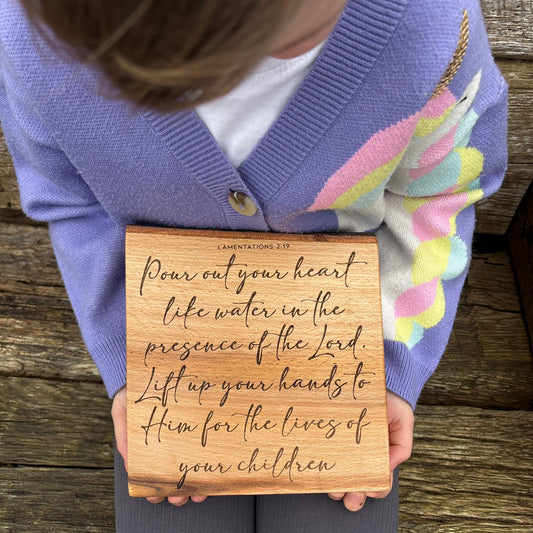 LAMENTATIONS 2:19
Pour out your heart
like water in the
presence of the Lord.
Lift up your hands to
Him for the lives of
your children